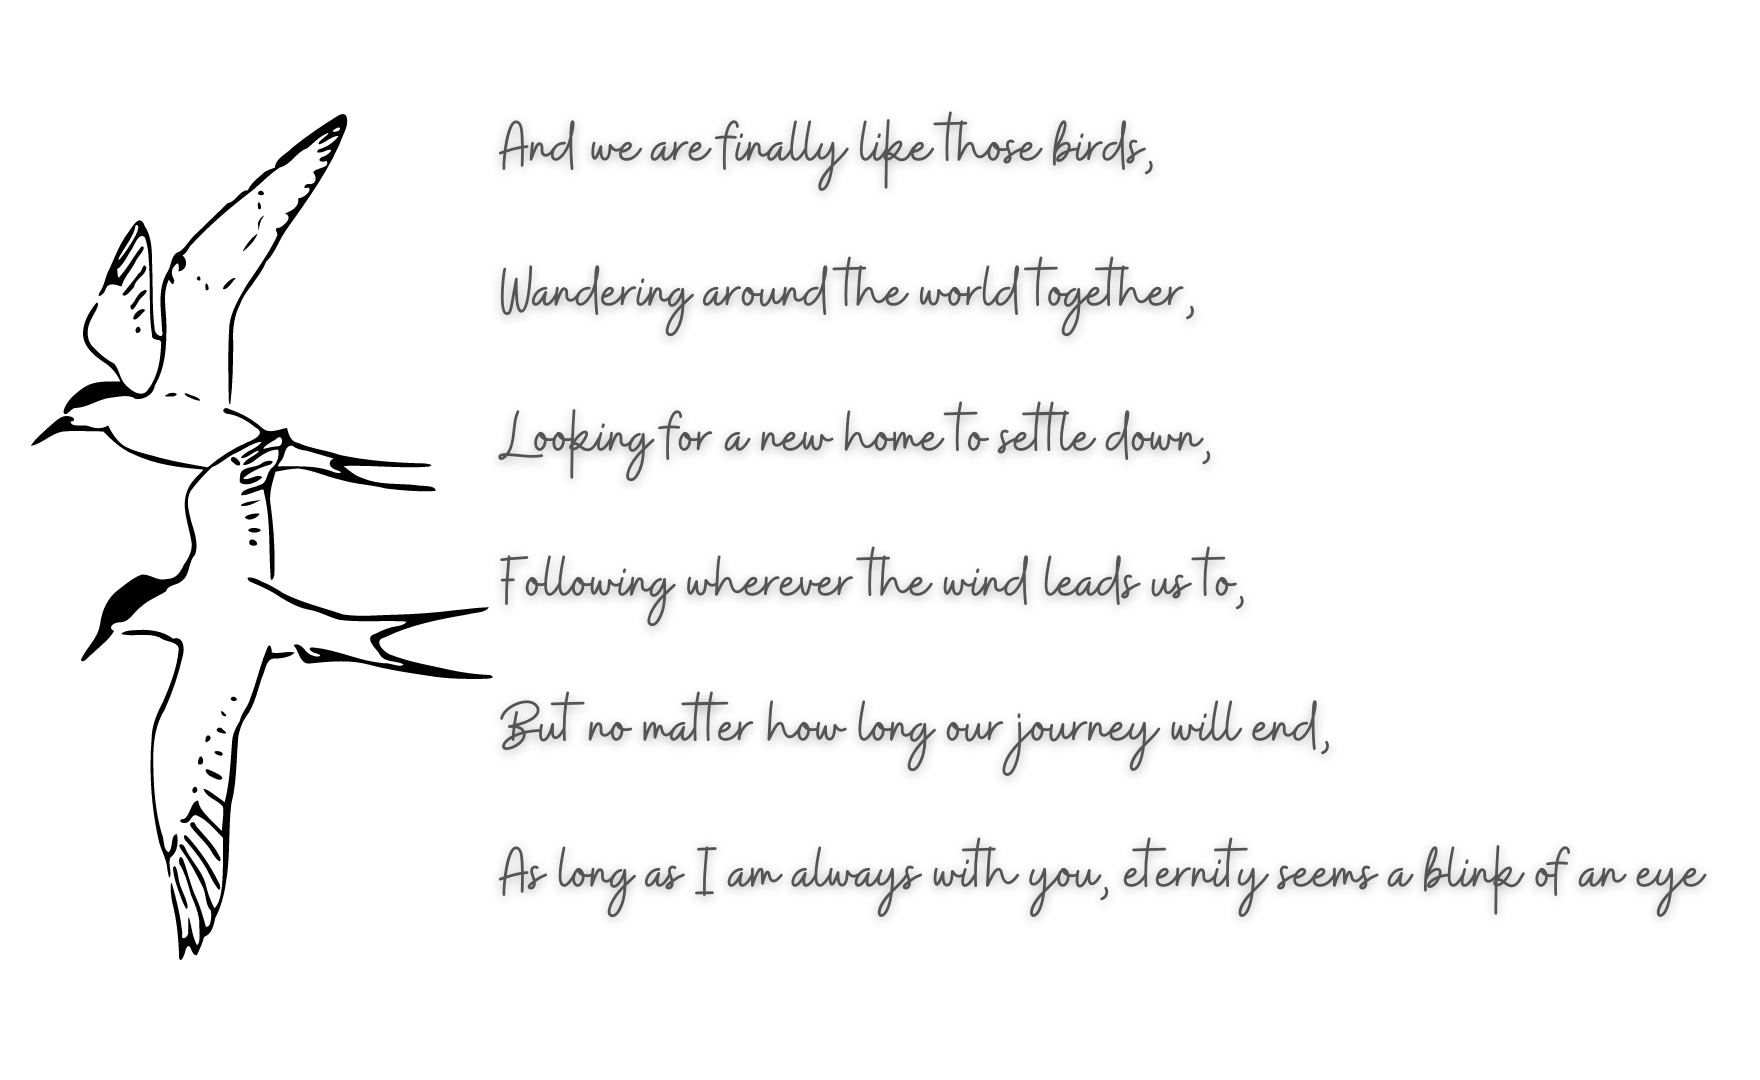 And we are finally like those birds,
Wandering around the world together,
Looking for a new home to settle down,
Following wherever the wind leads us to,
But no matter how long our journey will end,
As long as I am always with you, eternity seems a blink of an eye